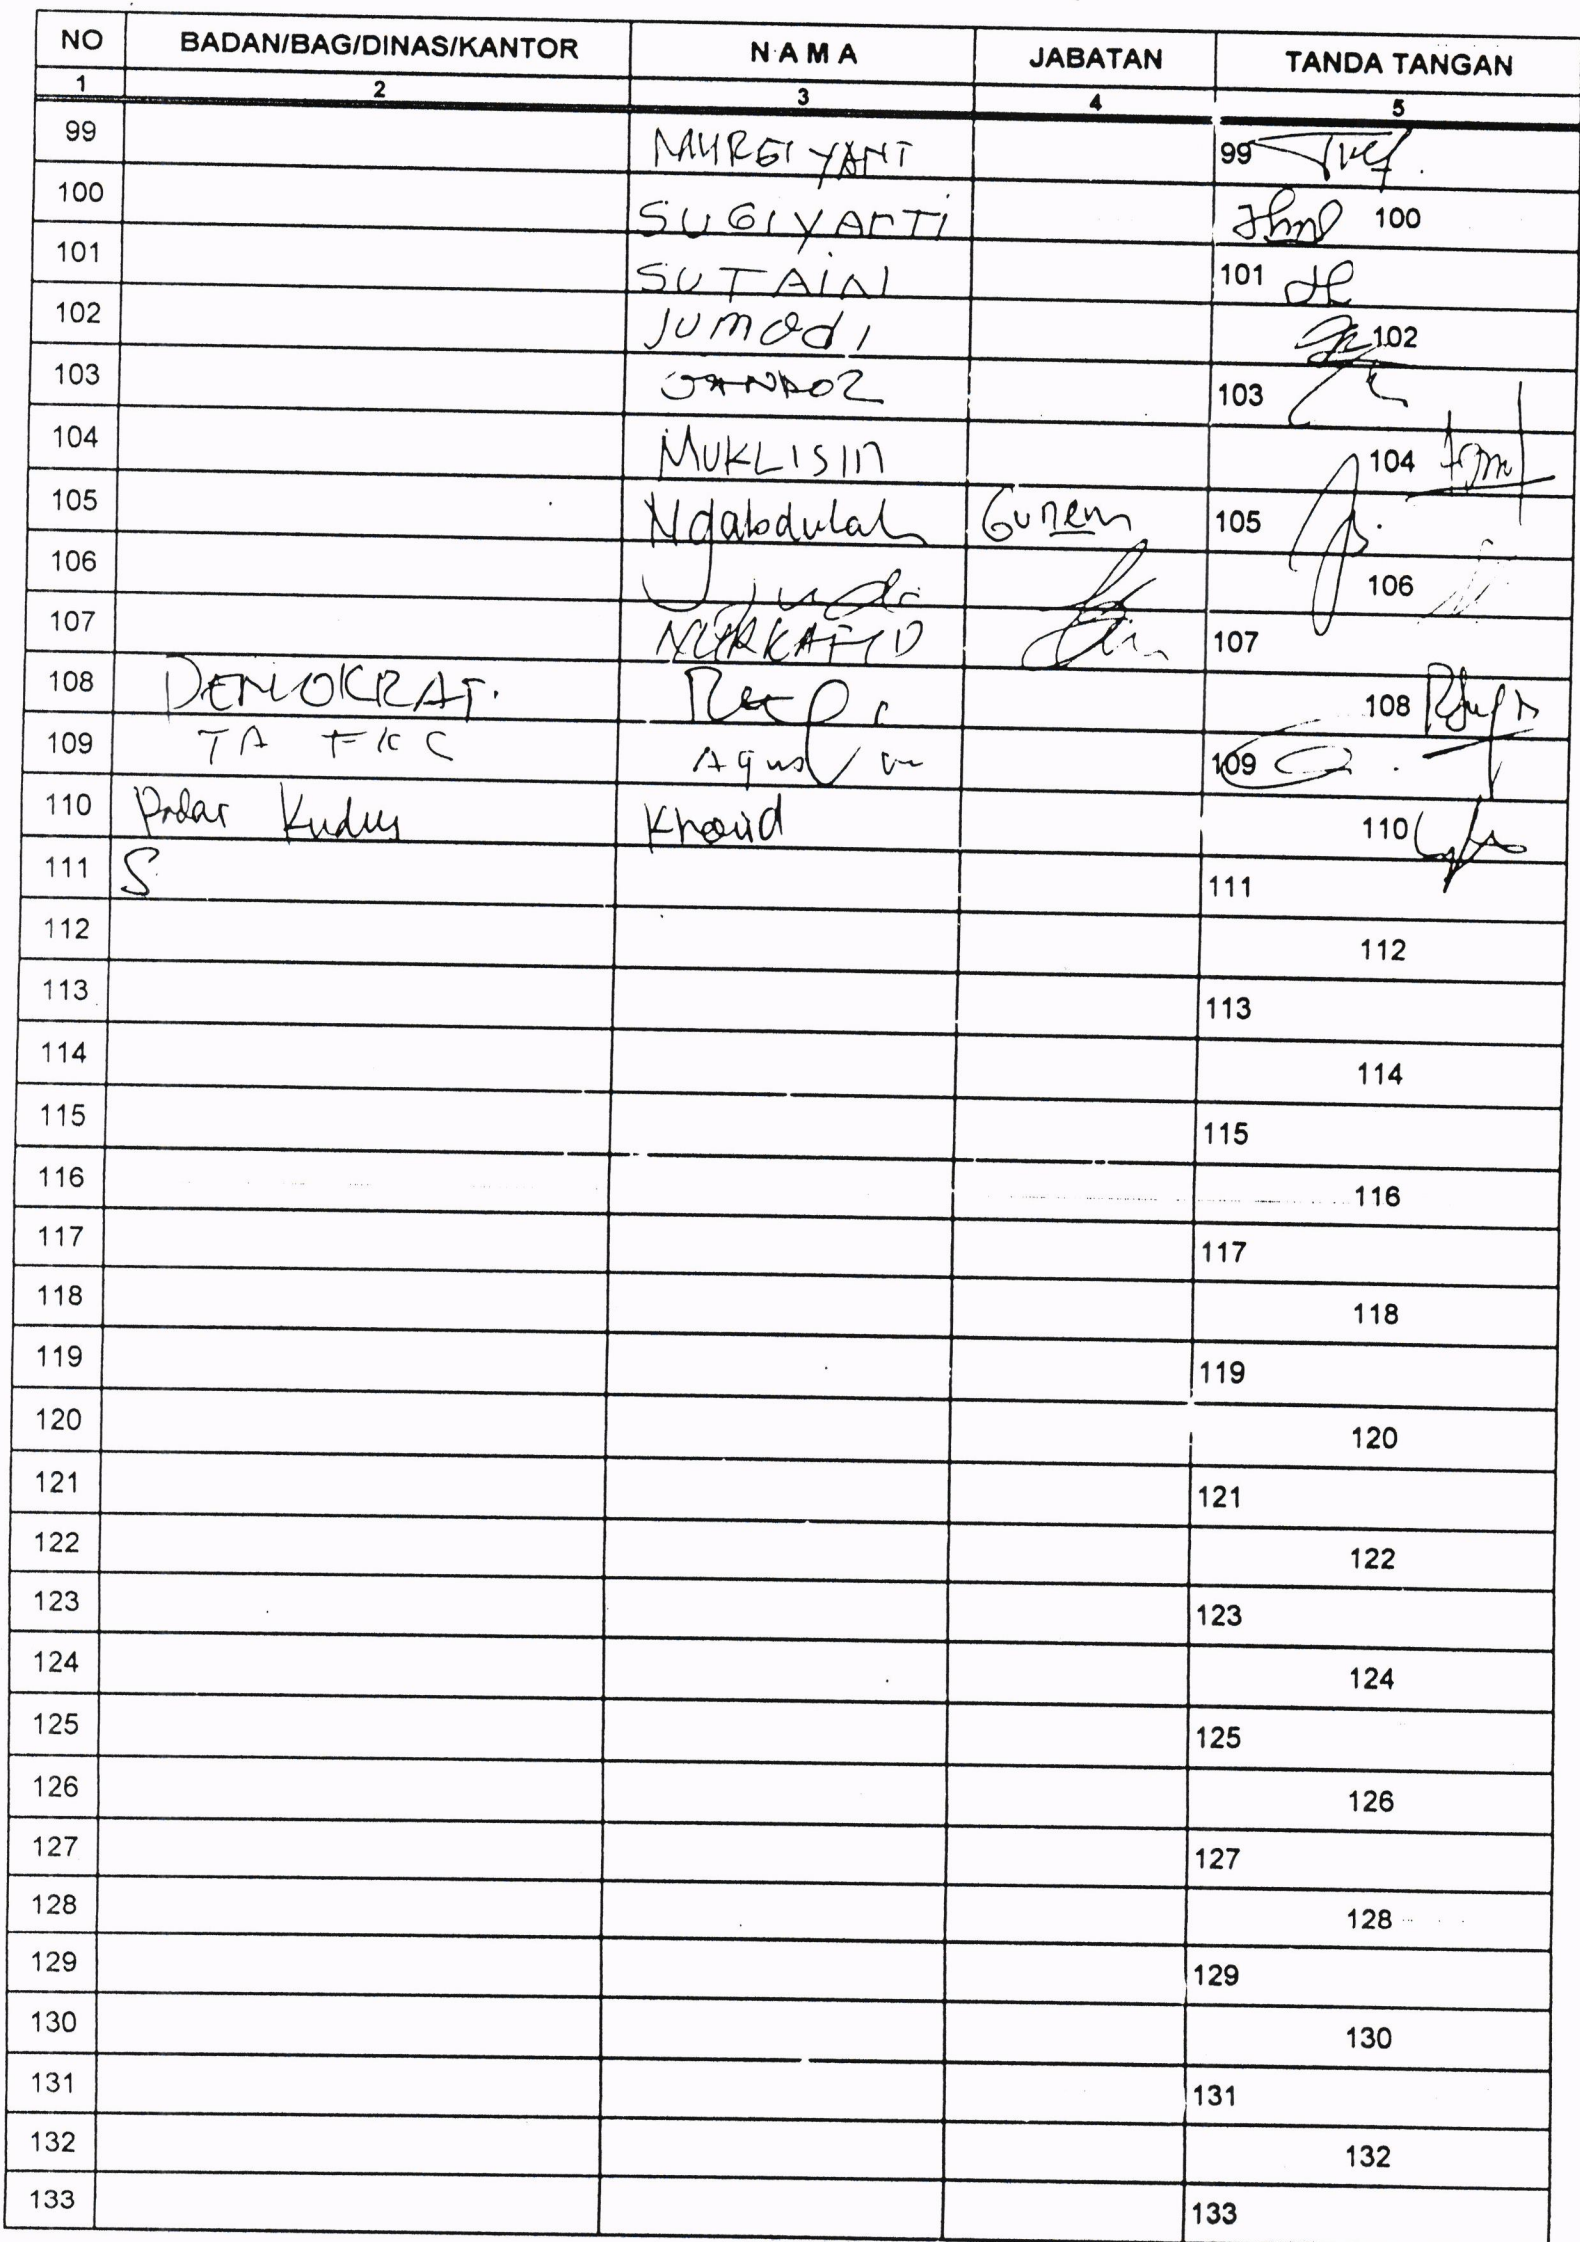 NO BADAN/BAG/DINAS/KANTOR N A M A JABATAN TANDA TANGAN
1 2 3 4 5
99 99
100 SUGIYANTI 100
101 SUTAINI 101
102 Jumadi 102
103 103
104 MUKLISIN 104
105 Ngabdulah Gunem 105
106 106
107 NURKAFID 107
108 DEMOKRAT. 108
109 TA FKC Agus 109
110 Kudus 110
111 S 111
112 112
113 113
114 114
115 115
116 116
117 117
118 118
119 119
120 120
121 121
122 122
123 123
124 124
125 125
126 126
127 127
128 128
129 129
130 130
131 131
132 132
133 133